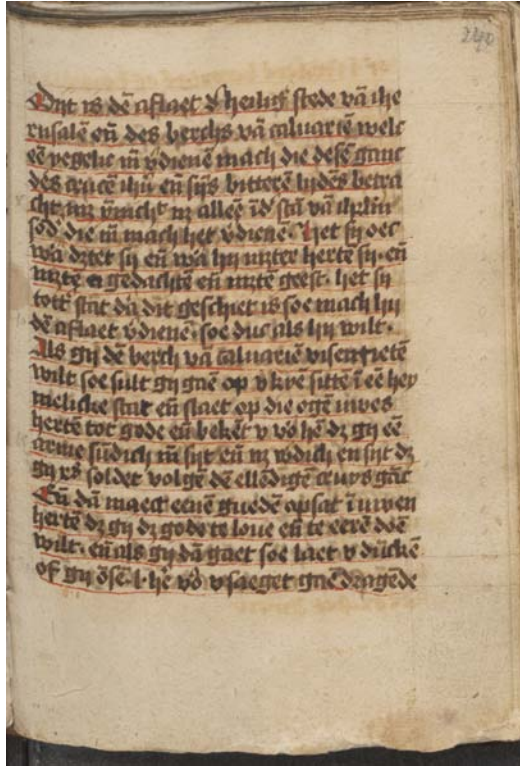 240
Dyt is dē aflaet d' heilig' stede vā ihe
rusalē eñ des berchs vā caluariē welc
ēē yegelic m̄ v'dienē mach die desē ganc
des crucē ihū eñ sijs bitterē lydēs betra
cht
sōd' die m̄ mach het v'dienē. Het sy oec
wa dz̄tet sy eñ wa hy mz̄ter hertē sy. eñ
mz̄tē gedachtē eñ mz̄tē geest. het sy
tottē stat da dit geschiet is soe mach hy
dē aflaet v'dienē. soe duc als hy wilt.
Als gy dē berch vā caluariē visentietē
wilt soe sult gy gaē op v knyē sittē ī ēē hey
melicke stat eñ slaet op die ogē uwes
hertē tot gode eñ bekēt v vo' hē dz gy ēē
arme sūdich m̄ sijt eñ nz wdich en sijt dz
gy soldet volgē dē ellēdigē cruys gāc
Eñ dā maect eenē guedē opsat ī uwen
hertē dz gy dz gode te loue eñ te eerē doē
wilt. eñ als gy dā gaet soe laet v dūckē
of gy v'saeget